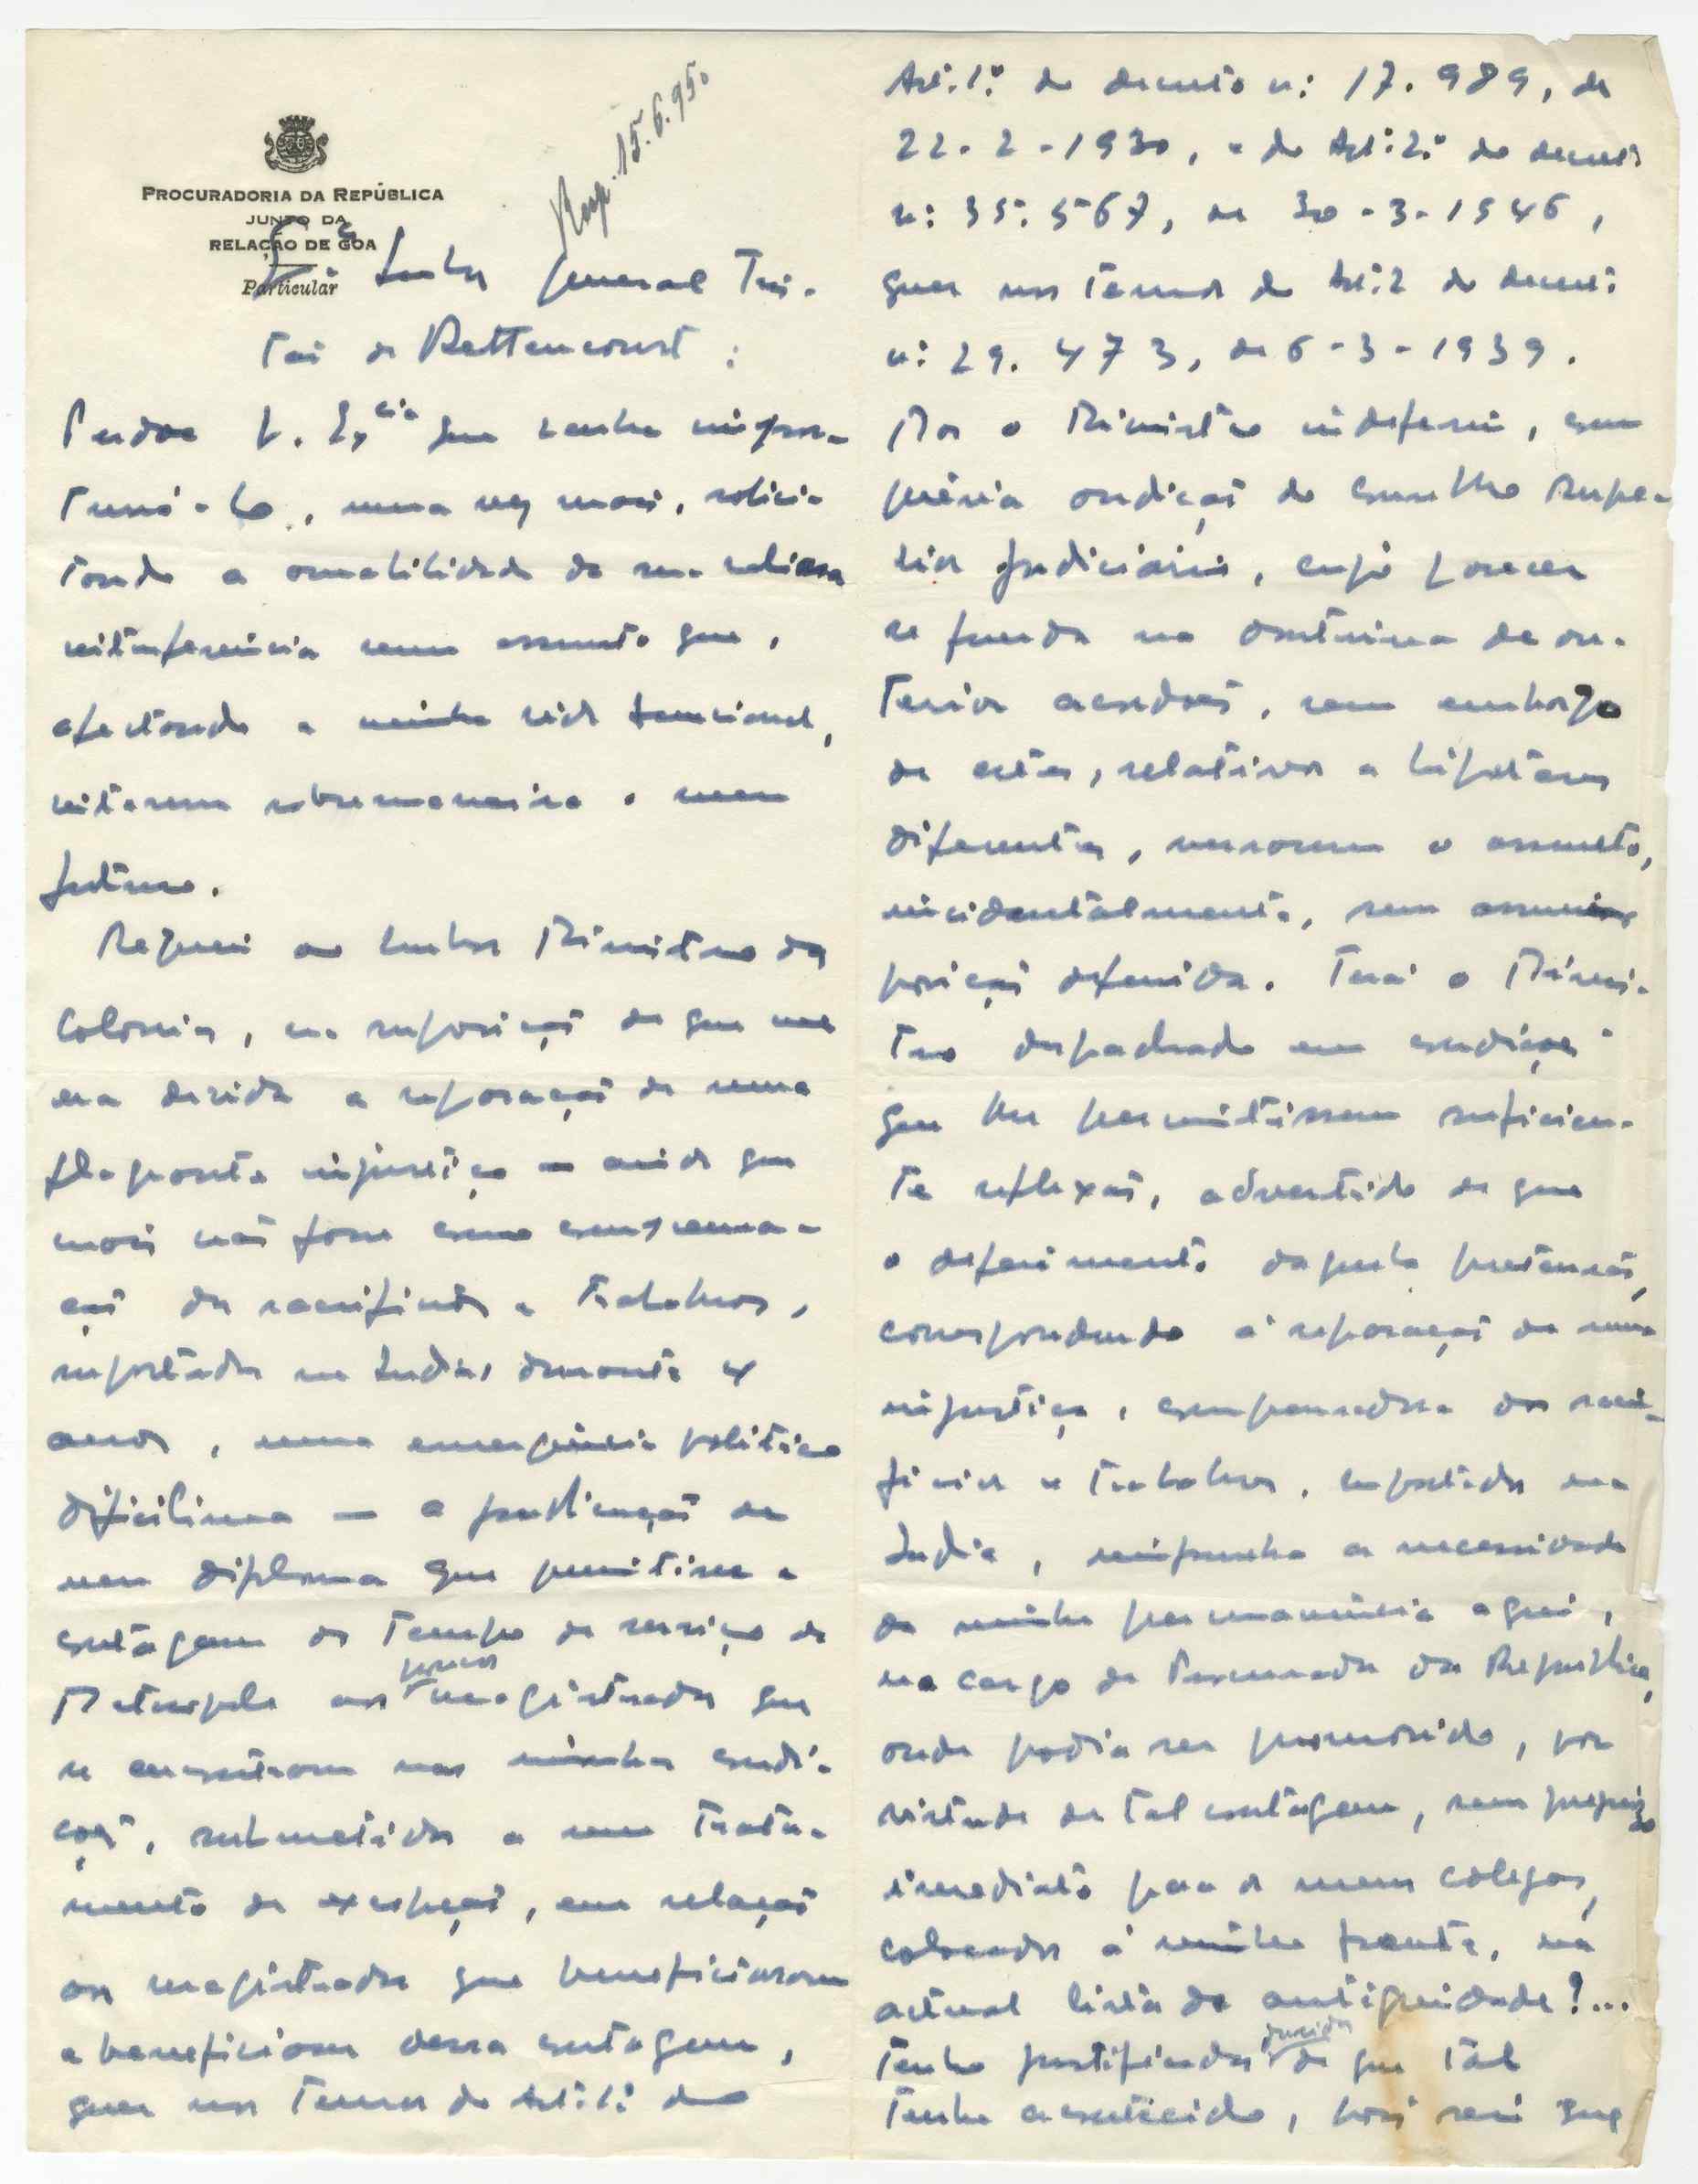 PROCURADORIA DA REPÚBLICA
JUNTO DA
RELAÇÃO DE GOA
Particular
Resp. 15.6.95.
Exº Senhor General Tei-
xei de Bettencourt:
Perdoe V. Ex.cia que venha impor-
tuná-lo, uma vez mais, solici-
tando a amabilidade da sua valiosa
interferência num assunto que,
afectando a minha vida funcional,
interessa sobremaneira o meu
futuro.
Requeri ao Senhor Ministro das
Colonias, na suposição de que me
era devida a reparação de uma
flagrante injustiça — ainda que
mais não fosse como compensa-
ção de sacrifícios e trabalhos,
suportados na India, durante 4
anos, numa emergência politica
dificilima — a publicação de
um diploma que permitisse a
contagem do tempo de serviço da
Metropole aos poucos magistrados que
se encontram nas minhas condi-
ções, submetidos a um trata-
mento de excepção, em relação
aos magistrados que beneficiaram
e beneficiam dessa contagem,
quer nos termos do Art.º 1.º do
Art.º 1.º do decreto n.º 17.989, de
22-2-1930, e do Art.º 2.º do decreto
n.º 35.567, de 30-3-1946,
quer nos termos do Art.º 2 do decreto
n.º 29.473, de 6-3-1939.
Mas o Ministro indeferiu, com
prévia audição do Conselho Supe-
rior Judiciário, cujo parecer
se funda na doutrina de an-
teriores acordãos, sem embargo
de estes, relativos a hipóteses
diferentes, versarem o assunto,
incidentalmente, sem assumir
posição definida. Terá o Minis-
tro despachado em condições
que lhe permitissem suficien-
te reflexão, advertido de que
o deferimento daquela pretensão,
correspondendo à reparação de uma
injustiça, compensadora dos sacri-
fícios e trabalhos, suportados na
India, impunha a necessidade
da minha permanência aqui,
no cargo de Procurador da Republica,
onde podia ser promovido, por
virtude de tal contagem, sem prejuizo
imediato para os meus colegas,
colocados à minha frente, na
actual lista de antiguidade?...
Tenho justificadas duvidas de que tal
tenha acontecido, pois sei que